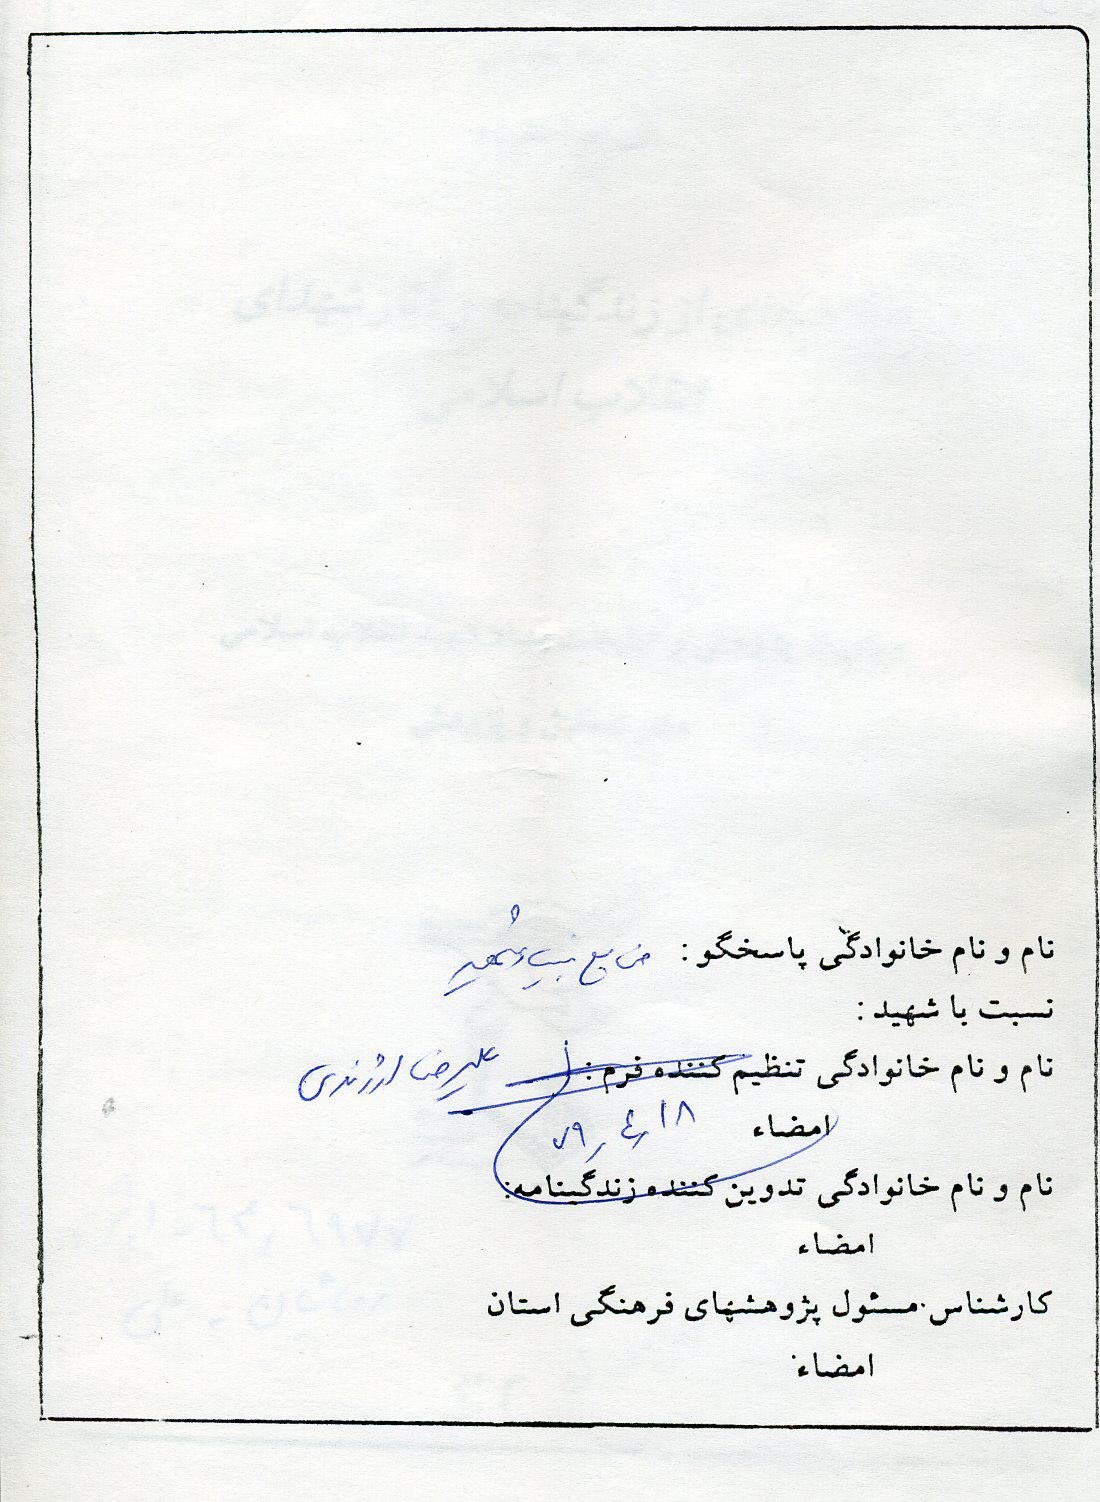 نام و نام خانوادگی پاسخگو :
نسبت با شهید :
نام و نام خانوادگی تنظیم کننده فرم : علیرضا
امضاء ۷۹٫۴٫۱۸
نام و نام خانوادگی تدوین کننده زندگینامه:
امضاء
کارشناس مسئول پژوهشهای فرهنگی استان
امضاء